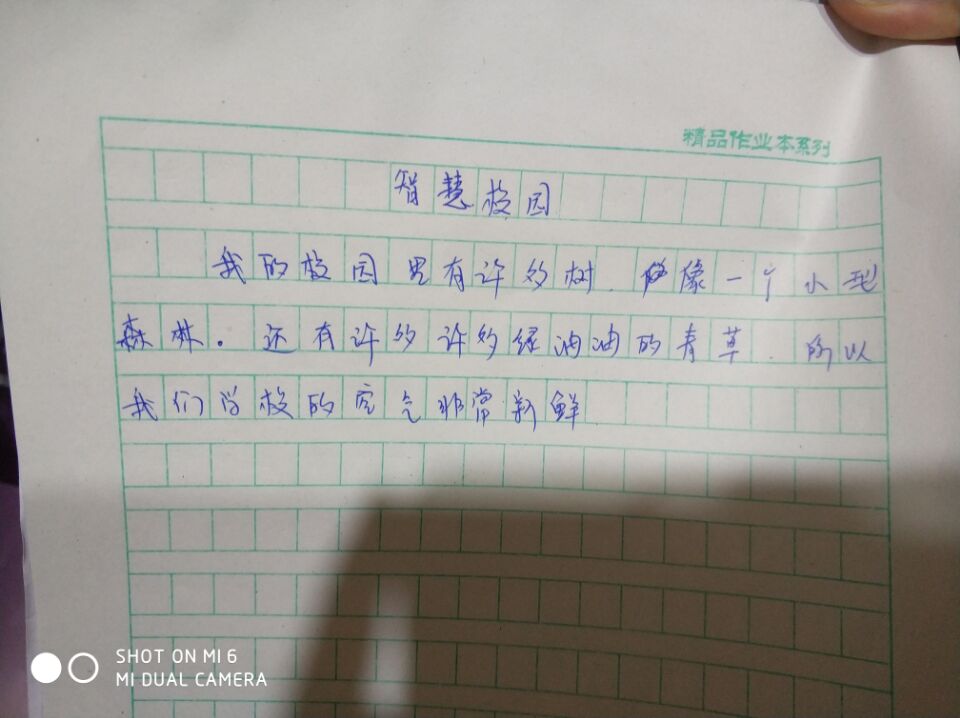 精品作业本系列
智慧校园
我的校园里有许多树.像一个小型
森林。还有许多许多绿油油的青草.所以
我们学校的空气非常新鲜
SHOT ON MI 6
MI DUAL CAMERA